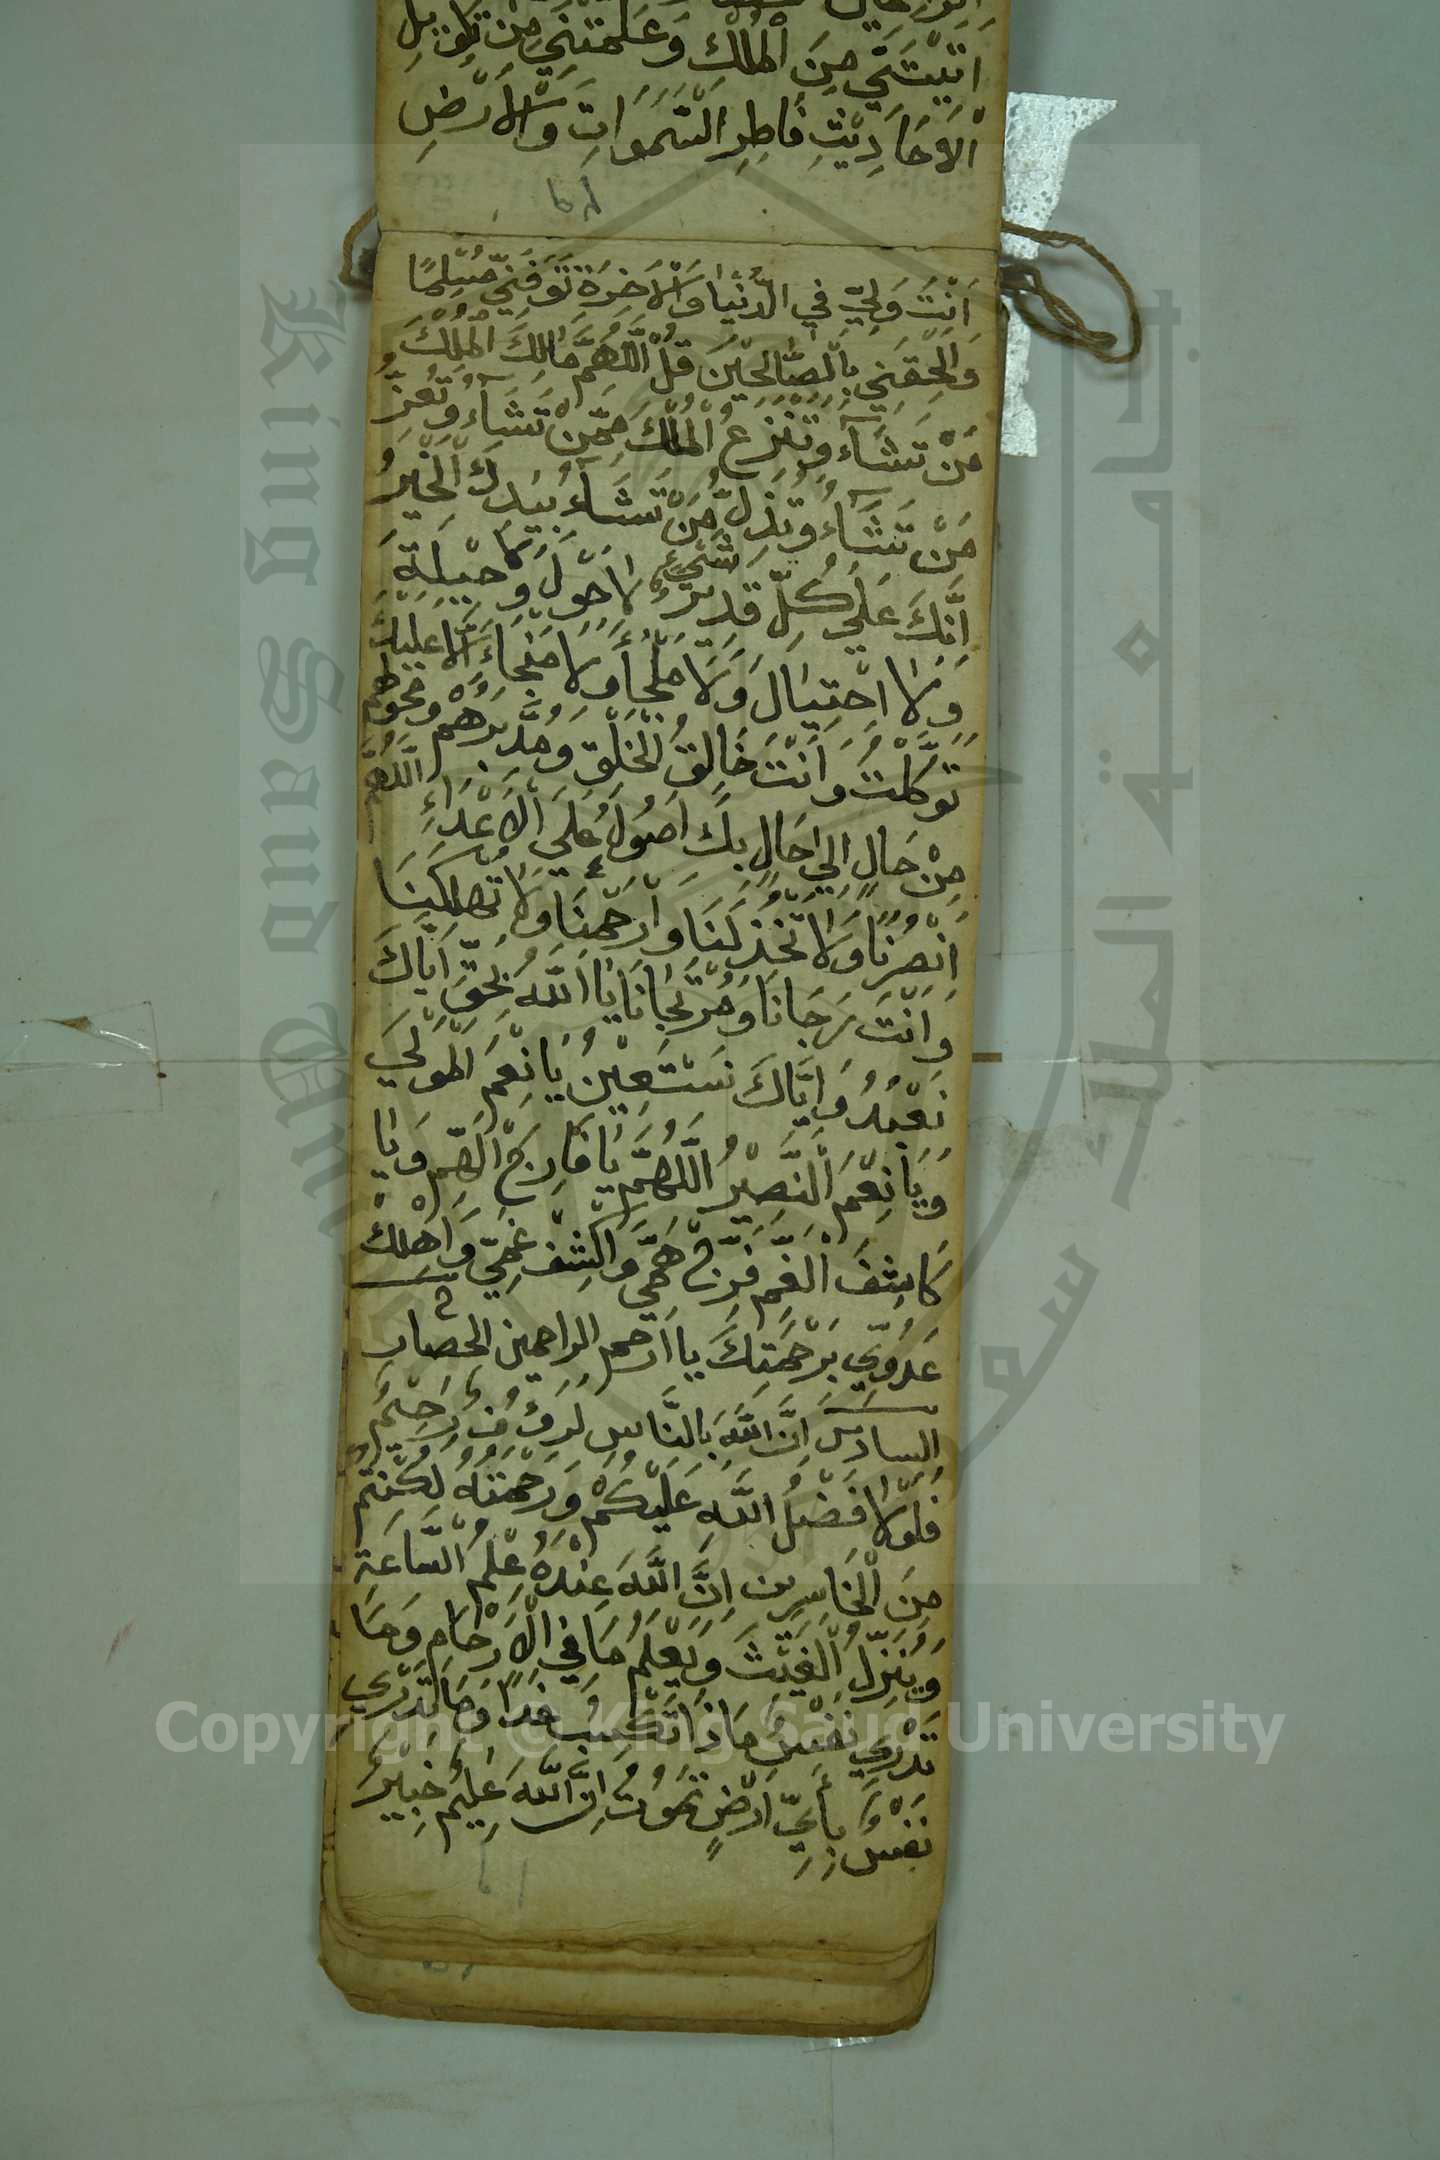 اتيتني من الملك وعلمتني من تاويل
الاحاديث فاطر السموات والارض
انت ولي في الدنيا والاخرة توفني مسلما
والحقني بالصالحين قل اللهم مالك الملك
من تشآء وتنزع الملك ممن تشآء وتعز
من تشآء وتذل من تشآء بيدك الخير
انك علي كل شيء قدير لا حول ولا حيلة
ولا احتيال ولا ملجأ ولا منجاء الا عليك
توكلت وانت خالق الخلق ومدبرهم ومحولهم
من حال الي حال بك اصول علي الاعداء اللهم
انصرنا ولا تخذلنا وارحمنا ولا تهلكنا
وانت رجانا ومرتجانا يا الله بحق اياك
نعبد واياك نستعين يا نعم المولي
ويا نعم النصير اللهم يا فارج الهم ويا
كاشف الغم فرج همي واكشف غمي واهلك
عدوي برحمتك يا ارحم الراحمين الحصار
السادس ان الله بالناس لرؤف رحيم
فلولا فضل الله عليكم ورحمته لكنتم
من الخاسرين ان الله عنده علم الساعة
وينزل الغيث ويعلم ما في الارحام وما
تدري نفس ماذا تكسب غدا وما تدري
نفس بأي ارض تموت ان الله عليم خبير
King Saud University
جامعة الملك سعود
Copyright © King Saud University